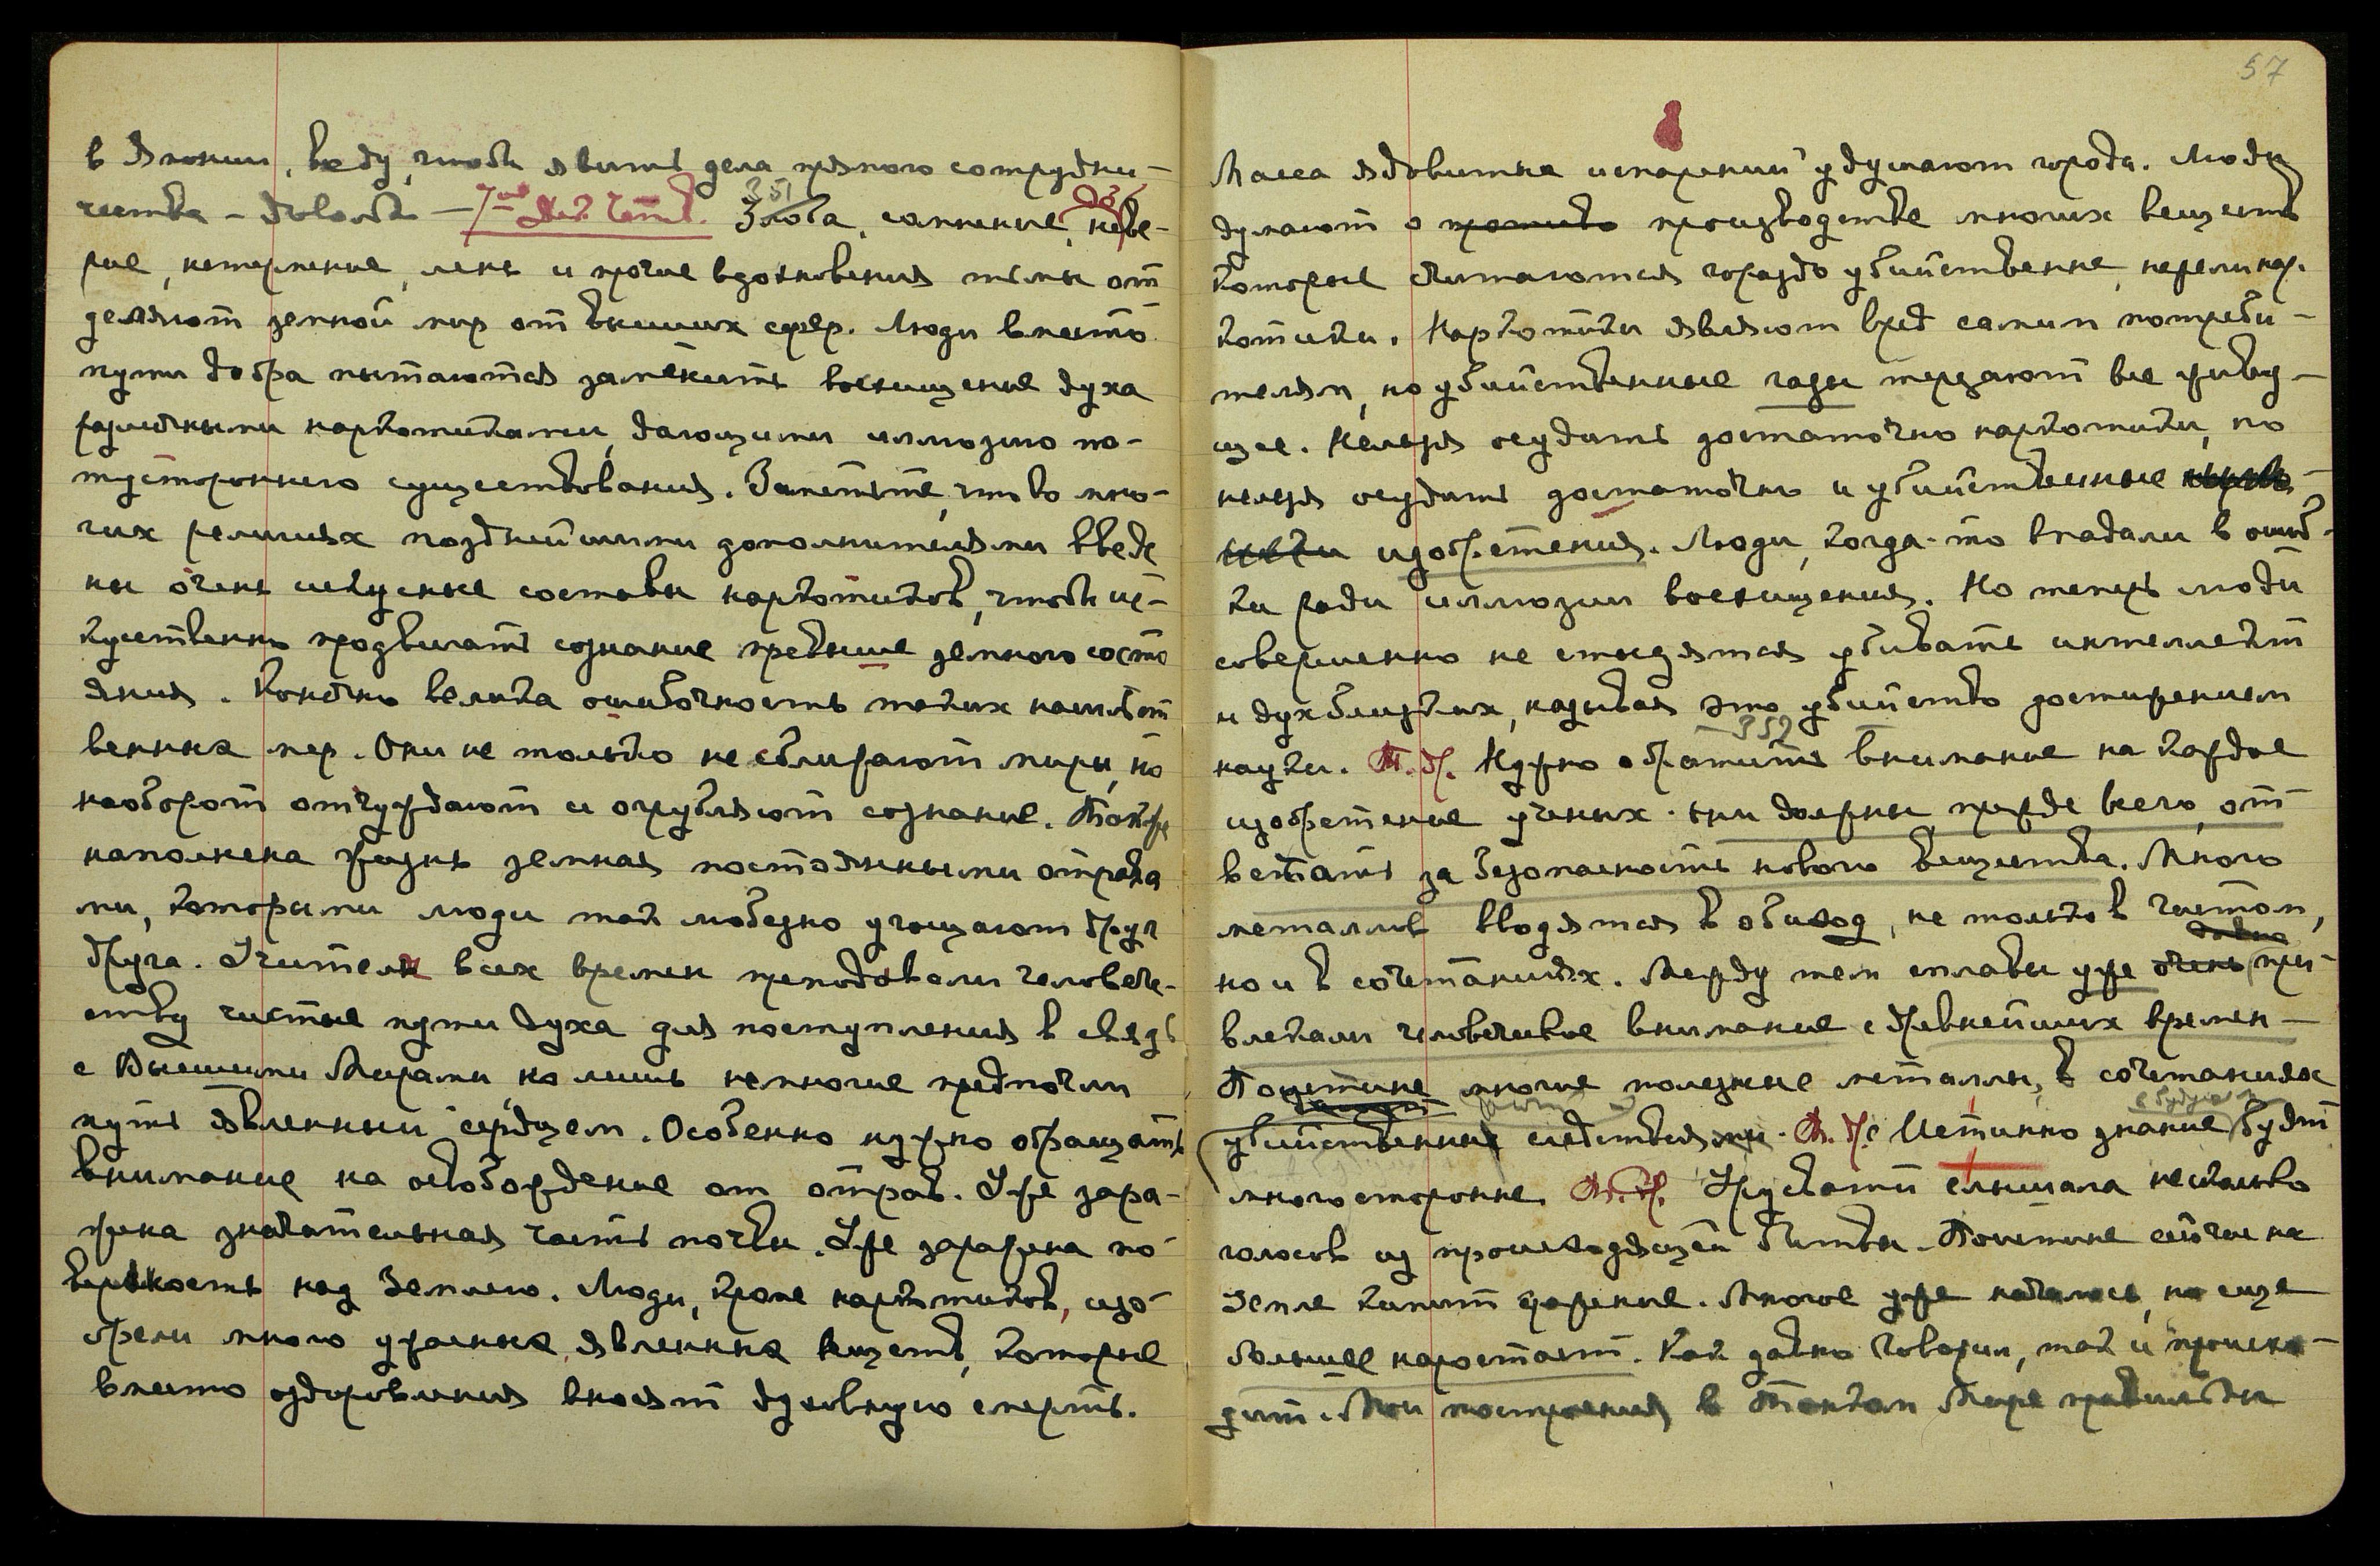 в Японии. Веду, чтобы явить дела прямого сотрудни-
чества – довольно – 7ое Дек. Четв. 351 Злоба, сомнение, неве-
рие, нетерпение, лень и прочие вдохновения тьмы от
деляют земной мир от высших сфер. Люди вместо
пути добра пытаются заменить восхищение духа
различными наркотиками, дающими иллюзию по-
тустороннего существования. Заметьте, что во мно-
гих религиях позднейшими дополнителями введе
ны очень искусные составы наркотиков, чтобы ис-
кусственно продвигать сознание превыше земного состо
яния. Конечно велика ошибочность таких насильст
венных мер. Они не только не сближают миры, но
наоборот отчуждают и огрубляют сознание. Также
наполнена жизнь земная постоянными отрава
ми, которыми люди так любезно угощают друг
друга. Учителя всех времен преподавали человече-
ству чистые пути духа для поступления в связь
с Высшими Мирами, но лишь немногие предпочли
путь явленный сердцем. Особенно нужно обращать
внимание на освобождение от отрав. Уже зара-
жена значительная часть почвы. Уже заражена по-
верхность над Землею. Люди, кроме наркотиков, изо-
брели много ужасных, явленных веществ, которые
вместо оздоровления вносят духовную смерть.
57
Масса ядовитых испарений удушают города. Люди
думают о производстве многих веществ
которые считаются гораздо убийственне, нежели нар.
котики. Наркотики являют вред самим потреби-
телям, но убийственные газы терзают все живу-
щее. Нельзя осудить достаточно наркотики, но
нельзя осудить достаточно и убийственные
изобретения. Люди когда-то впадали в ошиб-
ки ради иллюзии восхищения. Но теперь люди
совершенно не стыдятся убивать интеллект
и дух близких, называя это убийство достижением
науки. Т. др. 352 Нужно обратить внимание на каждое
изобретение ученых. они должны прежде всего от
вечать за безопасность нового вещества. Много
металлов вводятся в обиход, не только в чистом,
но и в сочетаниях. Между тем сплавы уже очень давно при-
влекали человеческое внимание с древнейших времен –
Поистине многие полезные металлы, в сочетаниях
дают
убийственные следствия. Т. др. Истинно знание в будущем будет
многосторонне. Т. др. Урусвати слышала несколько
голосов из происходящей битвы. Поистине сейчас на
Земле кипит сражение. Многое уже началось, но еще
большее нарастает. Как давно говорил, так и происхо-
дит. Мои построения в Тонком Мире правильны